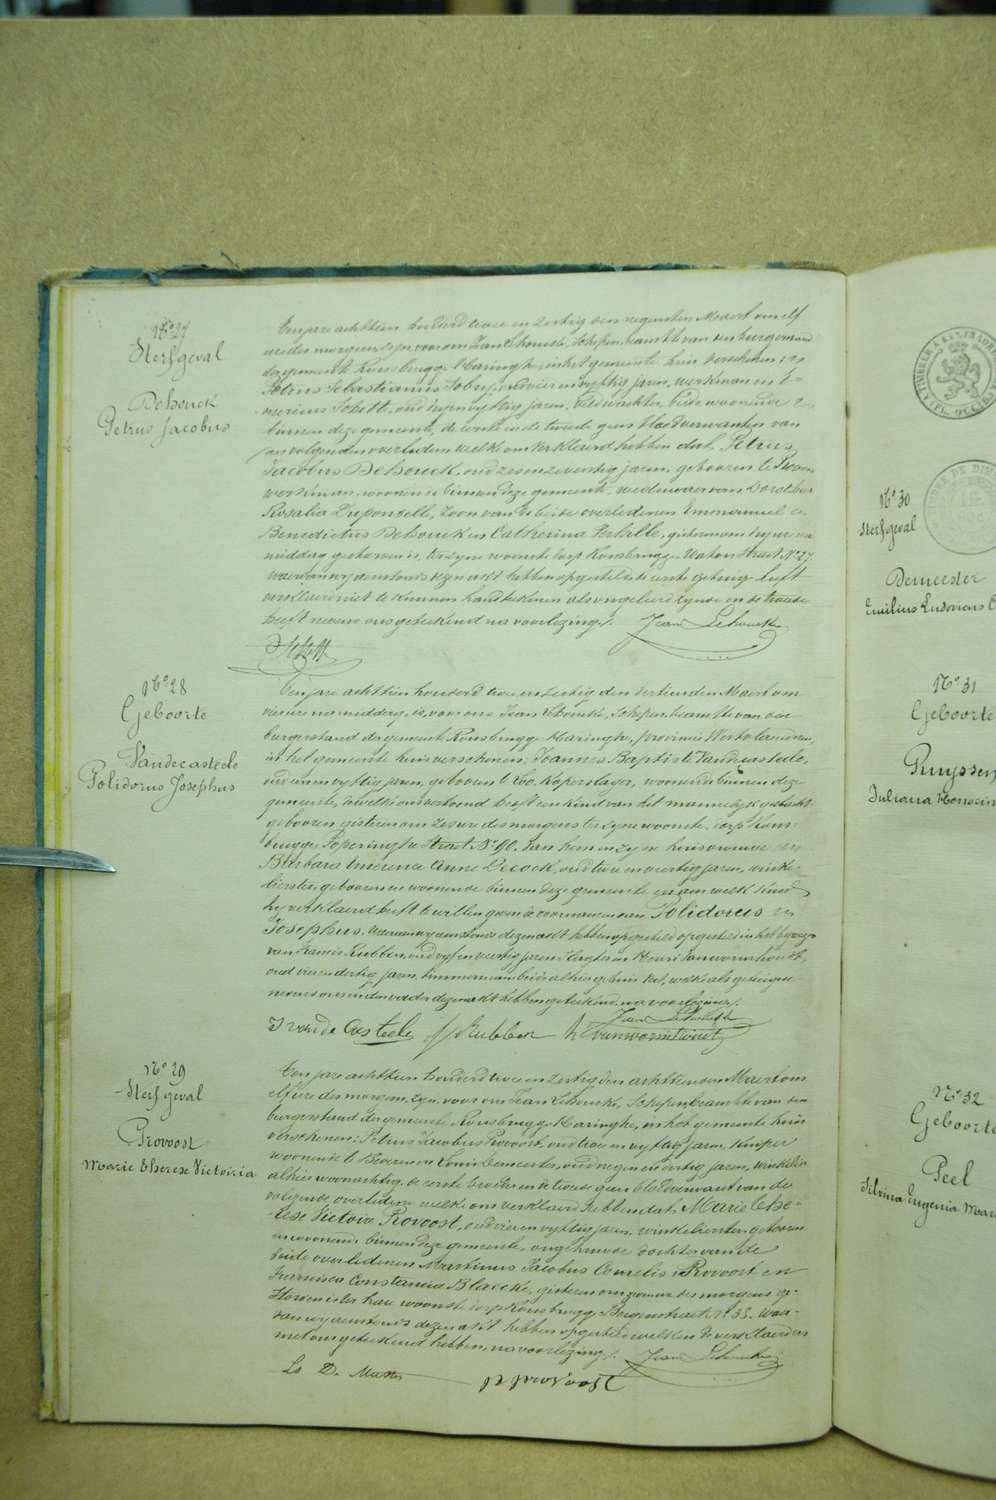 N° 27
Sterfgeval
Dehouck
Petrus Jacobus
Een jare achttien honderd twee en zestig den negensten Maert om elf
uer des morgens, zyn, voor ons Jean Lehoucke, Schepen, beambte van den burgerstand
der gemeente Rousbrugge Haringhe, in het gemeente huis verschenen
Petrus Sebastianus oud vier en vyftig jaren, werkman en
oud jaren, veldwachter, beide woonende
binnen deze gemeente, de eerste en de tweede geen bloedverwanten van
den volgenden overleden welke ons verklaerd hebben dat, Petrus
Jacobus Dehouck, oud zes en zeventig jaren, geboren te
werkman, woonende binnen deze gemeente, weduwaer van Dorothea
Rosalia Duponselle, zoon van de beide overledenen Emmanuel
Benedictus Dehouck en Catherina
middag gestorven is, ter zyne woonste dorp Rousbrugge Waton Straet, N° 27
waervan wy aenstonds dezen akt hebben opgesteld de eerste getuig heeft
verklaerd niet te kunnen handteekenen als ongeleerd zynde en de tweede
heeft nevens ons geteekend na voorlezing.
Jean Lehoucke
N° 28
Geboorte
Vandecasteele
Polidorus Josephus
Een jare achttien honderd twee en zestig den veertienden Maert om
vier ure namiddag, is, voor ons Jean Lehoucke, Schepen, beambte van den
burgerstand der gemeente Rousbrugge Haringhe, provincie West vlaenderen,
in het gemeente huis verschenen, Joannes Baptiste Vandecasteele,
oud een en vyftig jaren, geboren te Loo, koperslager, woonende binnen deze
gemeente, dewelke ons vertoond heeft een kind van het mannelyk geslacht
geboren gisteren om zes ure des morgens ter zyne woonste, dorp Rous-
brugge, Poperinghe Straet, N° 90, van hem en zyne huisvrouwe
Barbara Amerence Anne Decock, oud twee en veertig jaren, winke-
lierster, geboren en woonende binnen deze gemeente en aen welk kind
hy verklaerd heeft te willen geven de voornamen van Polidorus
Josephus. Waervan wy aenstonds dezen akt hebben opgesteld in het bywezen
van Francis Lubben, oud en veertig jaren, slagter en Henri Vanwormhoudt,
oud vier en dertig jaren, timmerman beide alhier gehuisvest, welk als getuigen
nevens ons en den vader dezen akt hebben geteekend, na voorlezing.
Jean Lehoucke
J vande Casteele F Lubben H vanwormhoudt
N° 29
Sterfgeval
Provoost
Marie Therese Victoiria
Een jare achttien honderd twee en zestig den achttiensten Maert om
elf ure des morgens, zyn, voor ons Jean Lehoucke, Schepen, beambte van den
burgerstand der gemeente Rousbrugge Haringhe, in het gemeente huis
verschenen: Petrus Jacobus Provoost, oud twee en vyftig jaren, kuiper
woonende te Beveren en Louis Demeester, oud negen en dertig jaren, winkelier
alhier woonachtig, de eerste broeder en de tweede geen bloedverwant van de
volgende overledene welke ons verklaerd hebben dat, Marie The-
rese Victoire Provoost, oud vier en vyftig jaren, winkelierster, geboren
en woonende binnen deze gemeente, ongehuwde dochter van de
beide overledenen Martinus Jacobus Cornelis Provoost en
Francisca Constancia Blaecke, gisteren om ure des morgens ge-
storven is ter hare woonste dorp Rousbrugge Bergenstraet, N° 35. Waer-
van wy aenstonds dezen akt hebben opgesteld welken de verklaerders
met ons geteekend hebben, na voorlezing.
Jean Lehoucke
Ls D. P J Provoost
N° 30
Sterfgeval
Demeester
Emilius Ludovicus
N° 31
Geboorte
Pruyssen
Juliana
N° 32
Geboorte
Peel
Silvina Eugenia